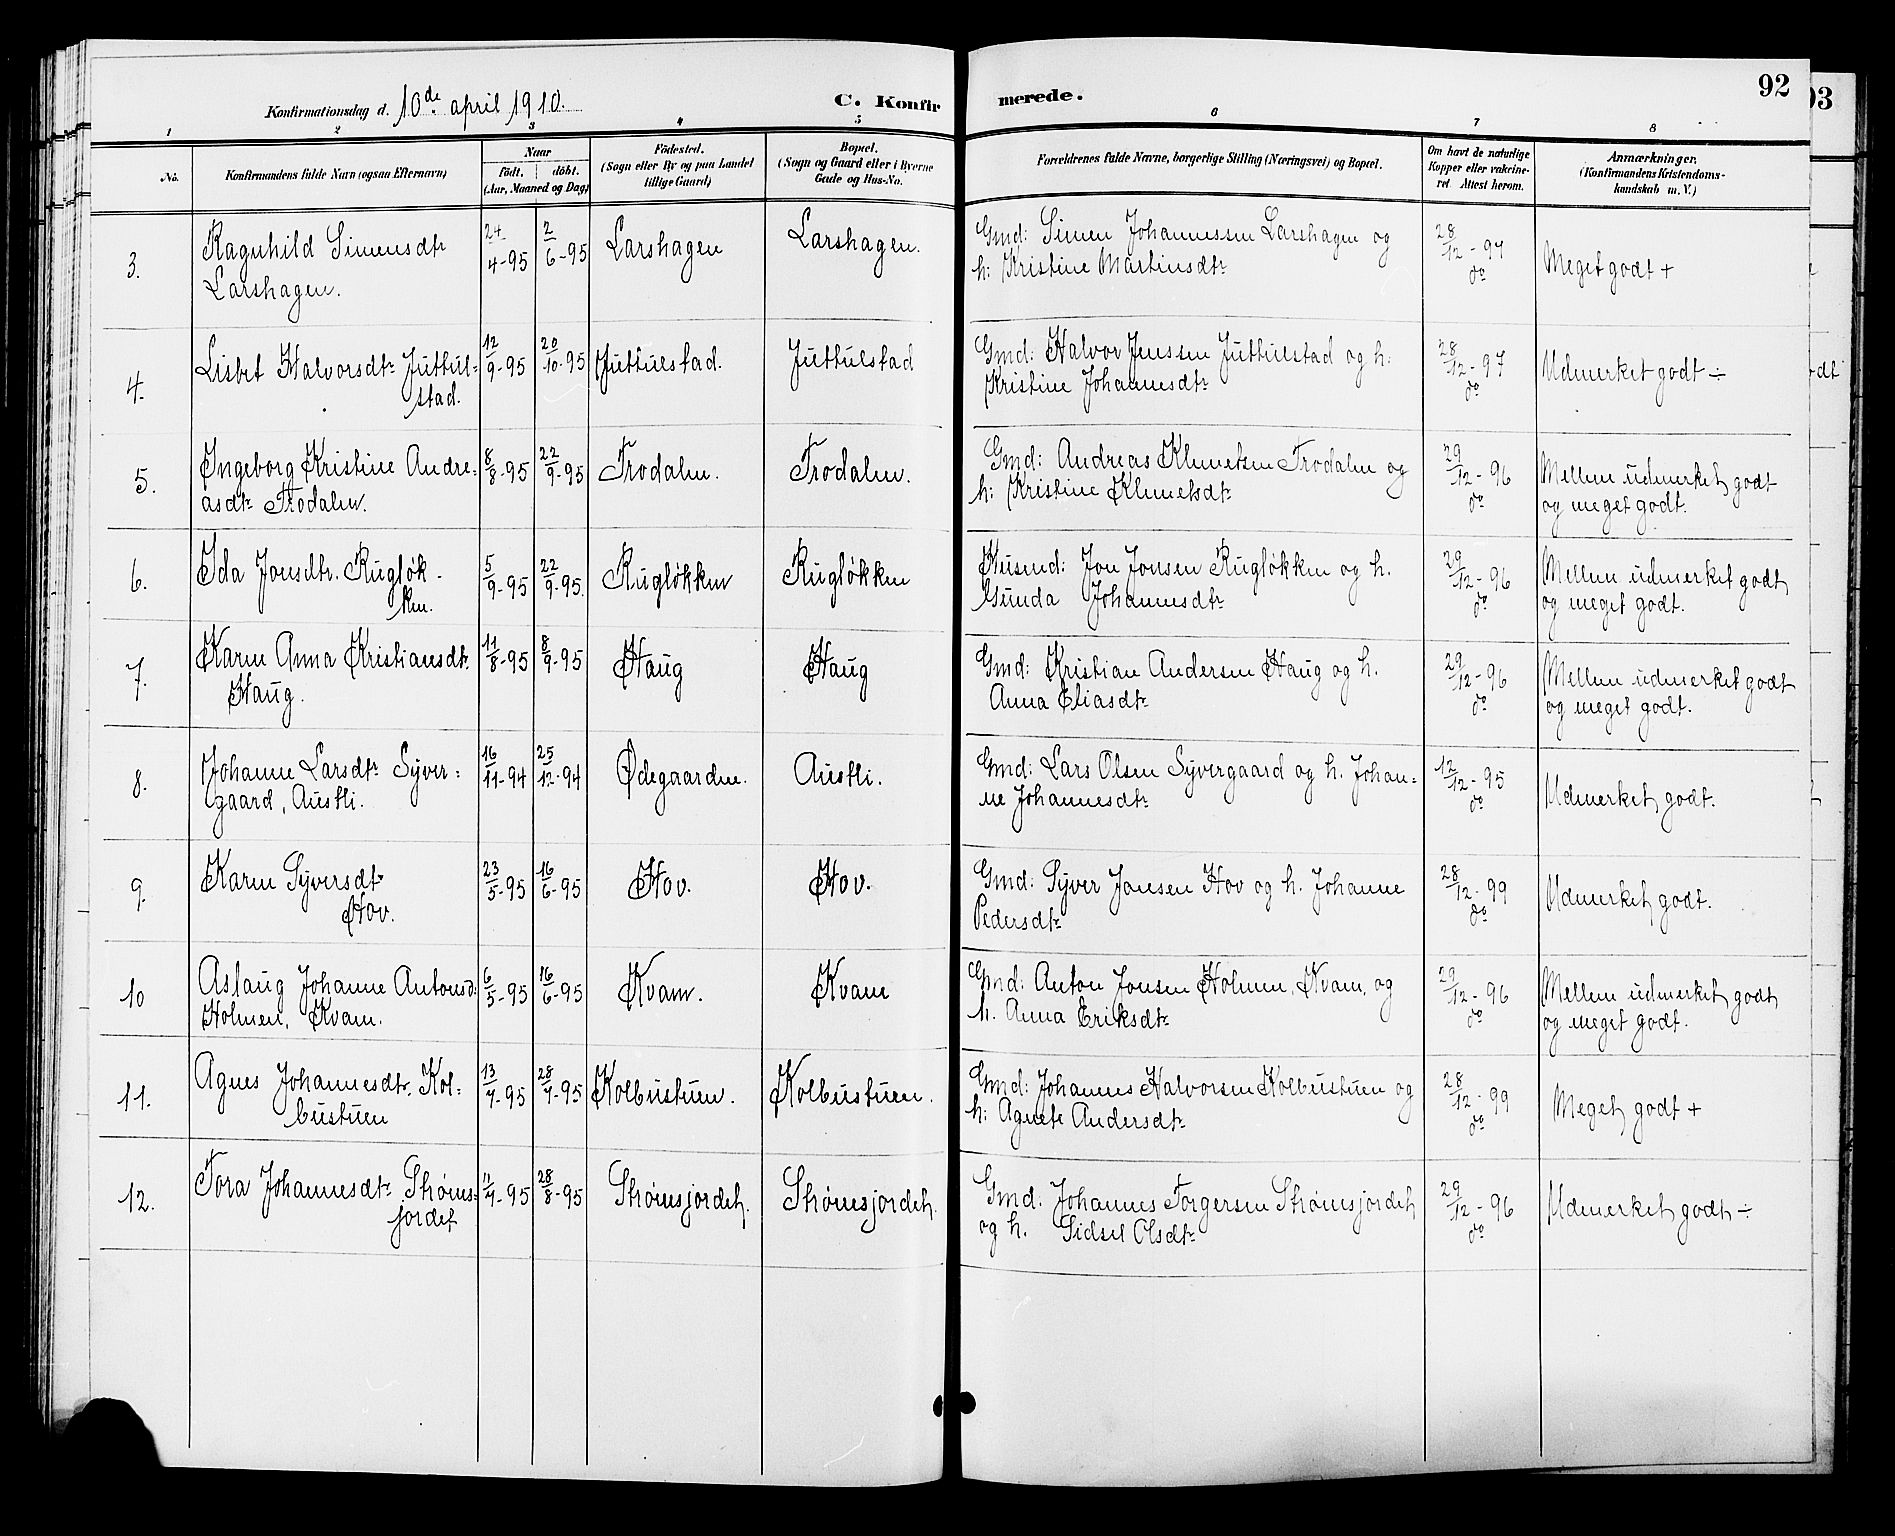 92
93
Konfirmationsdag d. 10de april 1910.
C. Konfirmerede.
1 2 3 4 5 6 7 8
No.
Konfirmandens fulde Navn (ogsaa Efternavn)
Naar
födt. döbt.
(Aar, Maaned og Dag)
Födested.
(Sogn eller By og paa Landet
tillige Gaard)
Bopæl.
(Sogn og Gaard eller i Byerne
Gade og Hus-No.
Forældrenes fulde Navne, borgerlige Stilling (Næringsvei) og Bopæl.
Om havt de naturlige
Kopper eller vakcine-
ret. Attest herom.
Anmærkninger.
(Konfirmandens Kristendoms-
kundskab m. V.)
3. Ragnhild Simensdtr 24/4-95 2/6-95 Larshagen Larshagen. Gmd: Simen Johannessen Larshagen og 28/12-97 Meget godt +
Larshagen. h: Kristine Martinsdtr do
4. Lisbet Halvorsdtr Juttul= 12/9-95 20/10-95 Juttulstad. Juttulstad Gmd: Halvor Jenssen Juttulstad og h: 28/12-97 Udmerket godt ÷
stad. Kristine Johannesdtr do
5. Ingeborg Kristine Andre= 8/8-95 22/9-95 Trodalen. Trodalen. Gmd: Andreas Klemetsen Trodalen og 29/12-96 Mellem udmerket godt
asdtr Trodalen. h: Kristine Klemetsdtr do og meget godt.
6. Ida Jonsdtr. Rugløk- 5/9-95 22/9-95. Rugløkken Rugløkken Husmd: Jon Jonsen Rugløkken og h. 29/12-96 Mellem udmerket godt
ken. Gunda Johannesdtr do og meget godt.
7. Karen Anna Kristiansdtr. 11/8-95 8/9-95 Haug Haug Gmd: Kristian Andersen Haug og h. 29/12-96 Mellem udmerket godt
Haug. Anna Eliasdtr do og meget godt.
8. Johanne Larsdtr Syver= 16/11-94 25/12-94 Ødegaarden. Austli. Gmd: Lars Olsen Syvergaard og h. Johan= 12/12-95 Udmerket godt.
gaard, Austli. ne Johannesdtr do
9. Karen Syversdtr 23/5-95 16/6-95 Hov. Hov. Gmd: Syver Jonsen Hov og h. Johanne 28/12-99 Udmerket godt.
Hov. Pedersdtr do
10 Aslaug Johanne Antonsd: 6/5-95 16/6-95 Kvam. Kvam Gmd: Anton Jonsen Holmen, Kvam, og 29/12-96 Mellem udmerket godt
Holmen, Kvam. h. Anna Eriksdtr do og meget godt.
11. Agnes Johannesdtr. Kol= 13/7-95 28/7-95 Kolbustuen. Kolbustuen. Gmd: Johannes Halvorsen Kolbustuen og 28/12-99 Meget godt +
bustuen h: Agnete Andersdtr do
12. Tora Johannesdtr Strøms= 11/7-95 28/8-95 Strømsjordet. Strømsjordet. Gmd: Johannes Torgersen Strømsjordet 29/12-96 Udmerket godt ÷
jordet og h. Sidsel Olsdtr do